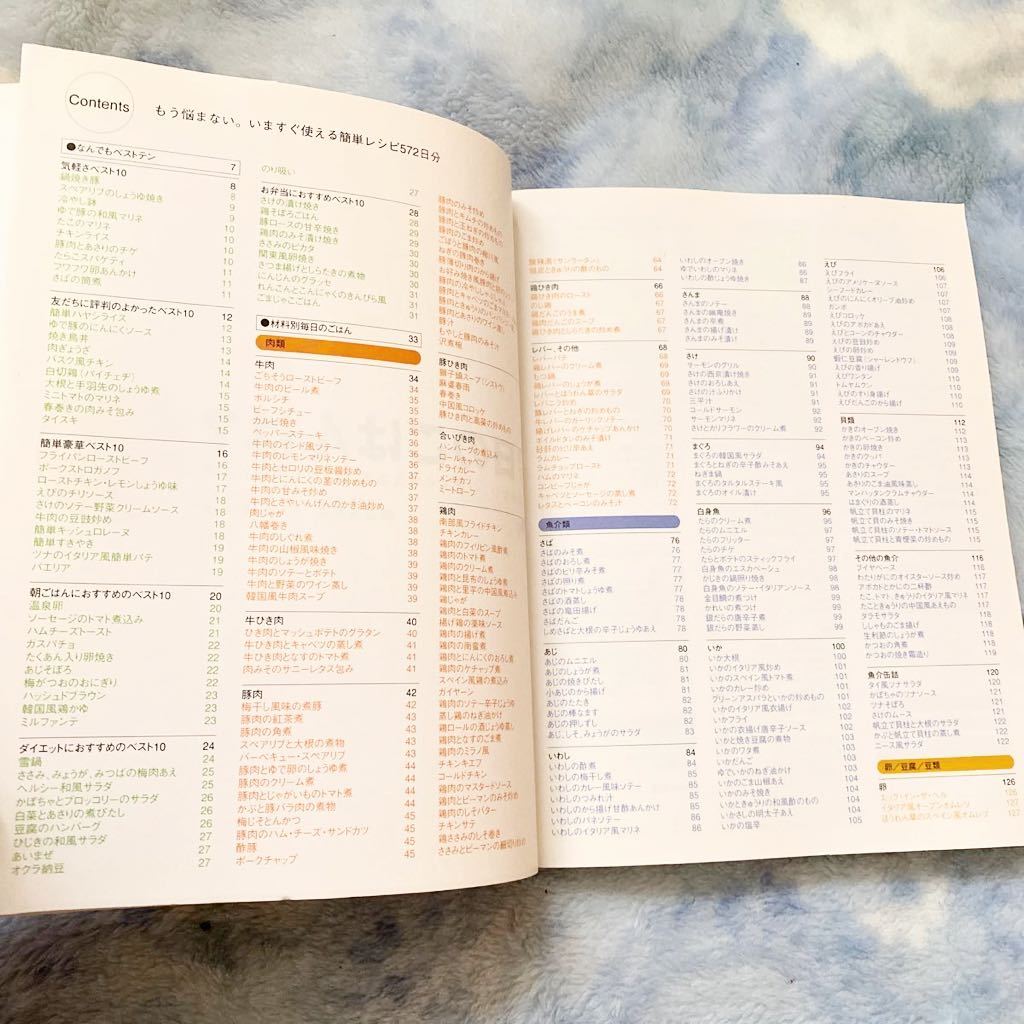 Contents
もう悩まない。いますぐ使える簡単レシピ572日分
●なんでもベストテン 7
気軽さベスト10 8
鍋焼き豚 8
スペアリブのしょうゆ焼き 9
冷やし鉢 9
ゆで豚の和風マリネ 10
たこのマリネ 10
チキンライス 10
豚肉とあさりのチゲ 10
たらこスパゲティ 11
フワフワ卵あんかけ 11
さばの筒煮 11
友だちに評判のよかったベスト10 12
簡単ハヤシライス 12
ゆで豚のにんにくソース 13
焼き鳥丼 13
肉ぎょうざ 13
バスク風チキン 14
白切鶏(パイチェチ) 14
大根と手羽先のしょうゆ煮 14
ミニトマトのマリネ 15
春巻きの肉みそ包み 15
タイスキ 15
簡単豪華ベスト10 16
フライパンローストビーフ 16
ポークストロガノフ 17
ローストチキン・レモンしょうゆ味 17
えびのチリソース 18
さけのソテー野菜クリームソース 18
牛肉の豆豉炒め 18
簡単キッシュロレーヌ 18
簡単すきやき 19
ツナのイタリア風簡単パテ 19
パエリア 19
朝ごはんにおすすめのベスト10 20
温泉卵 20
ソーセージのトマト煮込み 21
ハムチーズトースト 21
ガスパチョ 21
たくあん入り卵焼き 22
あじそぼろ 22
梅がつおのおにぎり 22
ハッシュドブラウン 23
韓国風鶏かゆ 23
ミルファンテ 23
ダイエットにおすすめのベスト10 24
雪鍋 24
ささみ、みょうが、みつばの梅肉あえ 25
ヘルシー和風サラダ 25
かぼちゃとブロッコリーのサラダ 25
白菜とあさりの煮びたし 26
豆腐のハンバーグ 26
ひじきの和風サラダ 26
あいまぜ 27
オクラ納豆 27
のり吸い 27
お弁当におすすめベスト10 28
さけの漬け焼き 28
鶏そぼろごはん 29
豚ロースの甘辛焼き 29
鶏肉のみそ漬け焼き 29
ささみのピカタ 30
関東風卵焼き 30
さつま揚げとしらたきの煮物 30
にんじんのグラッセ 30
れんこんとこんにゃくのきんぴら風 31
ごまじゃこごはん 31
●材料別毎日のごはん 33
肉類
牛肉 34
ごちそうローストビーフ 34
牛肉のビール煮 35
ボルシチ 35
ビーフシチュー 35
カルビ焼き 35
ペッパーステーキ 36
牛肉のインド風ソテー 36
牛肉のレモンマリネソテー 36
牛肉とセロリの豆板醤炒め 37
牛肉とにんにくの茎の炒めもの 37
牛肉の甘みそ炒め 37
牛肉とさやいんげんのかき油炒め 37
肉じゃが 38
八幡巻き 38
牛肉のしぐれ煮 38
牛肉の山椒風味焼き 38
牛肉のしょうが焼き 39
牛肉のソテーとポテト 39
牛肉と野菜のワイン蒸し 39
韓国風牛肉スープ 39
牛ひき肉 40
ひき肉とマッシュポテトのグラタン 40
牛ひき肉とキャベツの蒸し煮 41
牛ひき肉となすのトマト煮 41
肉みそのサニーレタス包み 41
豚肉 42
梅干し風味の煮豚 42
豚肉の紅茶煮 43
豚肉の角煮 43
スペアリブと大根の煮物 43
バーベキュー・スペアリブ 43
豚肉とゆで卵のしょうゆ煮 44
豚肉のクリーム煮 44
豚肉とじゃがいものトマト煮 44
かぶと豚バラ肉の煮物 44
梅じそとんかつ 45
豚肉のハム・チーズ・サンドカツ 45
酢豚 45
ポークチャップ 45
豚肉のみそ炒め
豚肉とキムチの炒めもの
豚肉と玉ねぎの炒めもの
豚肉のごま炒め
豚汁
もやしと豚肉のみそ汁
沢煮椀
豚ひき肉
獅子頭スープ(シズトウ)
麻婆春雨
春巻き
中国風コロッケ
豚ひき肉と高菜の炒めもの
合いびき肉
ハンバーグの煮込み
ロールキャベツ
ドライカレー
メンチカツ
ミートローフ
鶏肉
南部風フライドチキン
チキンカレー
鶏肉のフィリピン風酢煮
鶏肉のトマト煮
鶏肉のクリーム煮
鶏肉と昆布のしょうゆ煮
鶏肉と里芋の中国風煮込み
鶏じゃが
鶏肉と白菜のスープ
揚げ鶏の薬味ソース
鶏肉の揚げ煮
鶏肉の南蛮煮
鶏肉とにんにくのおろし煮
鶏肉のケチャップ煮
スペイン風鶏の煮込み
ガイヤーン
鶏肉のソテー辛子じょうゆ
蒸し鶏のねぎ油かけ
鶏ロールの酒じょうゆ蒸し
鶏肉となすのごま煮
鶏肉のミラノ風
チキンキエフ
コールドチキン
鶏肉のマスタードソース
鶏肉とピーマンのみそ炒め
鶏肉のしそバター
チキンサテ
鶏ささみのしそ巻き
ささみとピーマンの細切り炒め
酸辣湯(サンラータン) 64
鶏皮ときゅうりの酢のもの 64
鶏ひき肉 66
鶏ひき肉のロースト 66
のし鶏 67
鶏だんごのうま煮 67
鶏肉だんごのスープ 67
鶏ひき肉としらたきの炒め煮 67
レバー、その他 68
レバーパテ 68
鶏レバーのクリーム煮 69
もつ鍋 69
鶏レバーのしょうが煮 69
レバーとほうれん草のサラダ 69
レバニラ炒め 70
豚レバーとねぎの炒めもの 70
揚げレバーのケチャップあんかけ 70
ボイルドタンのみそ汁 70
砂肝のピリ辛あえ 71
ラムカレー 71
ラムチョップロースト 71
ハムのマリネ 71
コンビーフじゃが 72
キャベツとソーセージの蒸し煮 72
レタスとベーコンのみそ汁 72
魚介類
さば 76
さばのみそ煮 76
さばのおろし煮 77
さばのピリ辛みそ煮 77
さばの照り煮 77
さばのトマトしょうゆ煮 77
さばの酒蒸し 78
さばの竜田揚げ 78
さばだんご 78
しめさばと大根の辛子じょうゆあえ 79
あじ 80
あじのムニエル 80
あじのしょうが煮 81
あじの焼きびたし 81
小あじのから揚げ 81
あじのたたき 82
あじの棒なます 82
あじの押しずし 82
あじ、しそ、みょうがのサラダ 83
いわし 84
いわしの酢煮 84
いわしの梅干し煮 85
いわしのカレー風味ソテー 85
いわしのつみれ汁 85
いわしのから揚げ甘酢あんかけ 85
いわしのパネソテー 86
いわしのイタリア風マリネ 86
いわしのオーブン焼き 86
ゆでいわしのマリネ 87
いわしの酢じょうゆ焼き 87
さんま 88
さんまのソテー 88
さんまの幽庵焼き 89
さんまの辛煮 89
さんまの揚げ漬け 89
さんまのみそ漬け 89
さけ 90
サーモンのグリル 90
さけの西京漬け焼き 91
さけのおろしあえ 91
さけの汁ふりかけ 91
三平汁 91
コールドサーモン 92
サーモンマリネ 92
さけとカリフラワーのクリーム煮 92
まぐろ 94
まぐろの韓国風サラダ 94
まぐろとねぎの辛子酢みそあえ 95
ねぎま鍋 95
まぐろのタルタルステーキ風 95
まぐろのオイル漬け 95
白身魚 96
たらのクリーム煮 96
たらのムニエル 97
たらのフリッター 97
たらのチゲ 97
たらとポテトのスティックフライ 97
白身魚のエスカベーシュ 98
かじきの鍋照り焼き 98
白身魚のソテー・イタリアンソース 98
金目鯛の煮つけ 98
かれいの煮つけ 99
銀だらの唐辛子煮 99
銀だらの野菜蒸し 99
いか 100
いか大根 100
いかのイタリア風炒め 101
いかのスペイン風トマト煮 101
いかのカレー炒め 101
グリーンアスパラといかの炒めもの 101
いかのイタリア風衣揚げ 102
いかフライ 102
いかの衣揚げ唐辛子ソース 102
いかと焼き豆腐の煮物 102
いかのワタ煮 103
いかだんご 103
ゆでいかのねぎ油かけ 103
いかのごま山椒あえ 103
いかのみそ焼き 104
いかときゅうりの和風酢のもの 104
いかさしの明太子あえ 104
いかの塩辛 105
えび 106
えびフライ 106
えびのアメリケーヌソース 107
シーフードカレー 107
えびのにんにくオリーブ油炒め 107
ガンボ 107
えびコロッケ 108
えびのアボカドあえ 108
えびとコーンのチャウダー 108
えびの豆豉炒め 108
えびの卵炒め 109
蝦仁豆腐(シャーレントウフ) 109
えびの香り揚げ 109
えびワンタン 110
トムヤムクン 110
えびのすり身揚げ 110
えびだんごのから揚げ 110
貝類 112
かきのオーブン焼き 112
かきのベーコン炒め 113
かきの卵焼き 113
かきのクッパ 113
かきのチャウダー 113
あさりのスープ 114
あさりのごま油風味蒸し 114
マンハッタンクラムチャウダー 114
はまぐりの酒蒸し 114
帆立て貝柱のマリネ 115
帆立て貝のみそ焼き 115
帆立て貝柱のソテー・トマトソース 115
帆立て貝柱と青梗菜の炒めもの 115
その他の魚介 116
ブイヤベース 116
わたりがにのオイスターソース炒め 117
アボカドとかにの二杯酢 117
たこ、トマト、きゅうりのイタリア風マリネ 117
たこときゅうりの中国風あえもの 117
タラモサラダ 118
ししゃものごま揚げ 118
生利節のしょうが煮 118
かつおの角煮 118
かつおの焼き霜造り 119
魚介缶詰 120
タイ風ツナサラダ 120
かぼちゃのツナソース 121
ツナそぼろ 121
さけのムース 121
帆立て貝柱と大根のサラダ 121
かぶと帆立て貝柱の蒸し煮 122
ニース風サラダ 122
卵/豆腐/豆類
卵 126
エッグ・イン・ザ・ヘル 126
イタリア風オープンオムレツ 127
ほうれん草のスペイン風オムレツ 127